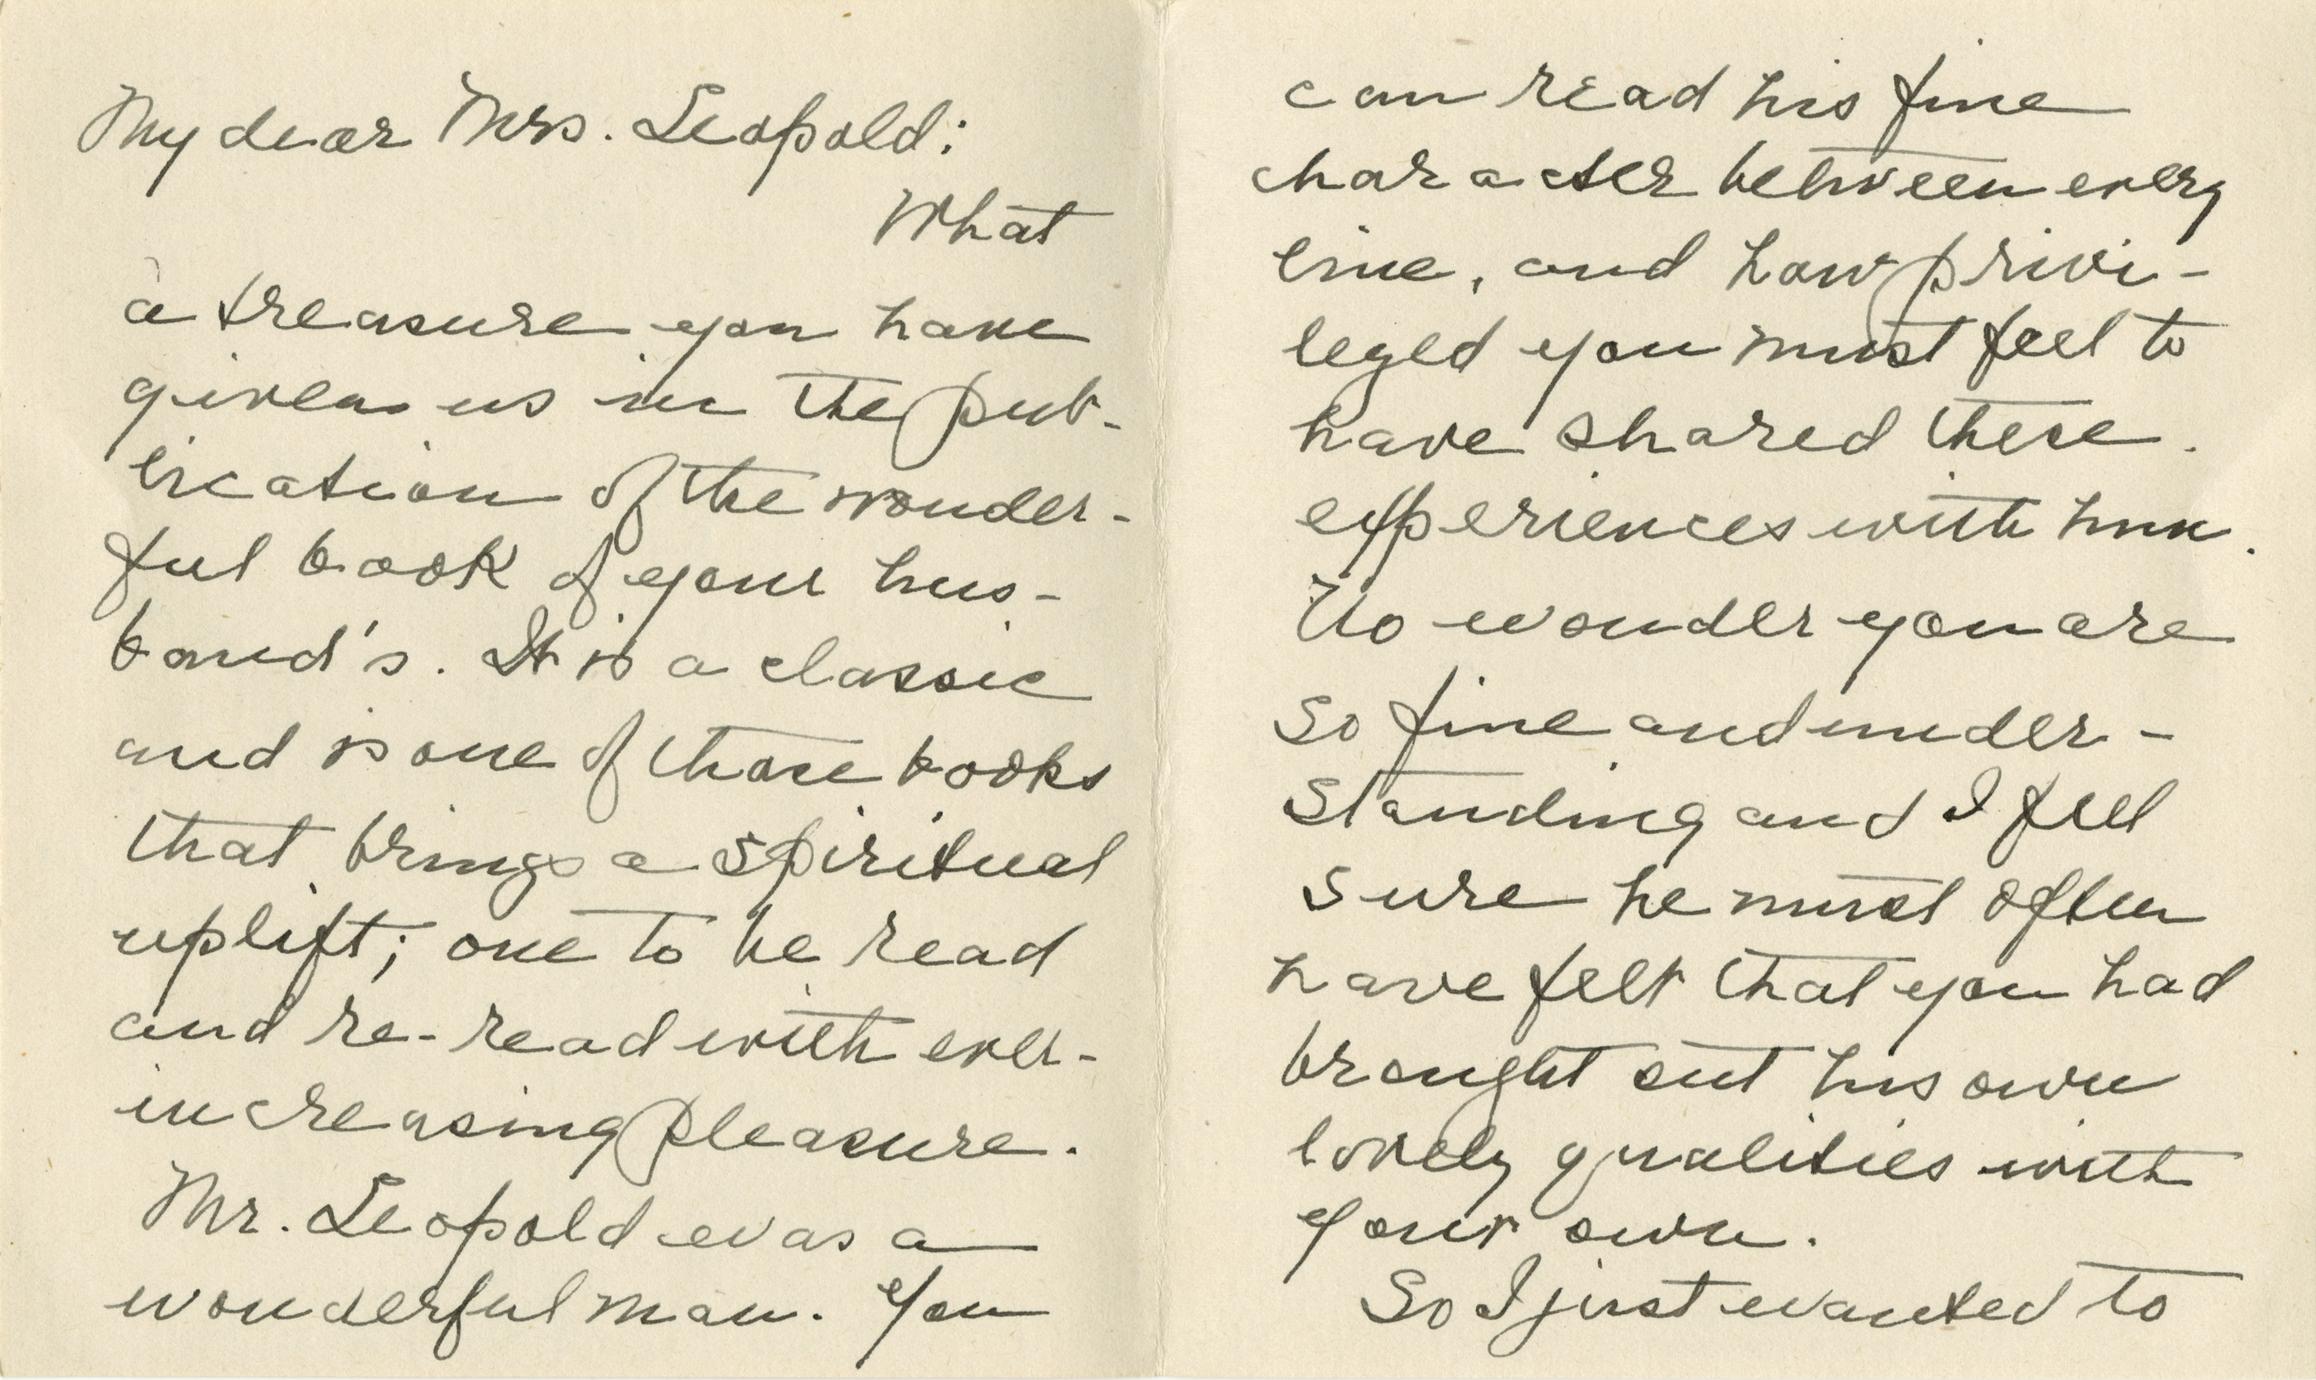 My dear Mrs. Leopold:
What
a treasure you have
given us in the pub-
lication of the wonder-
ful book of your hus-
band's. It is a classic
and is one of those books
that brings a spiritual
uplift; one to be read
and re-read with ever-
increasing pleasure.
Mr. Leopold was a
wonderful man. You
can read his fine
character between every
line, and how privi-
leged you must feel to
have shared these
experiences with him.
No wonder you are
so fine and under-
standing and I feel
sure he must often
have felt that you had
brought out his own
lovely qualities with
your own.
So I just wanted to